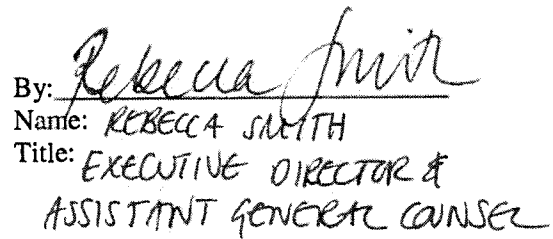 By: Rebecca Smith
Name: REBECCA SMITH
Title: EXECUTIVE DIRECTOR &
ASSISTANT GENERAL COUNSEL